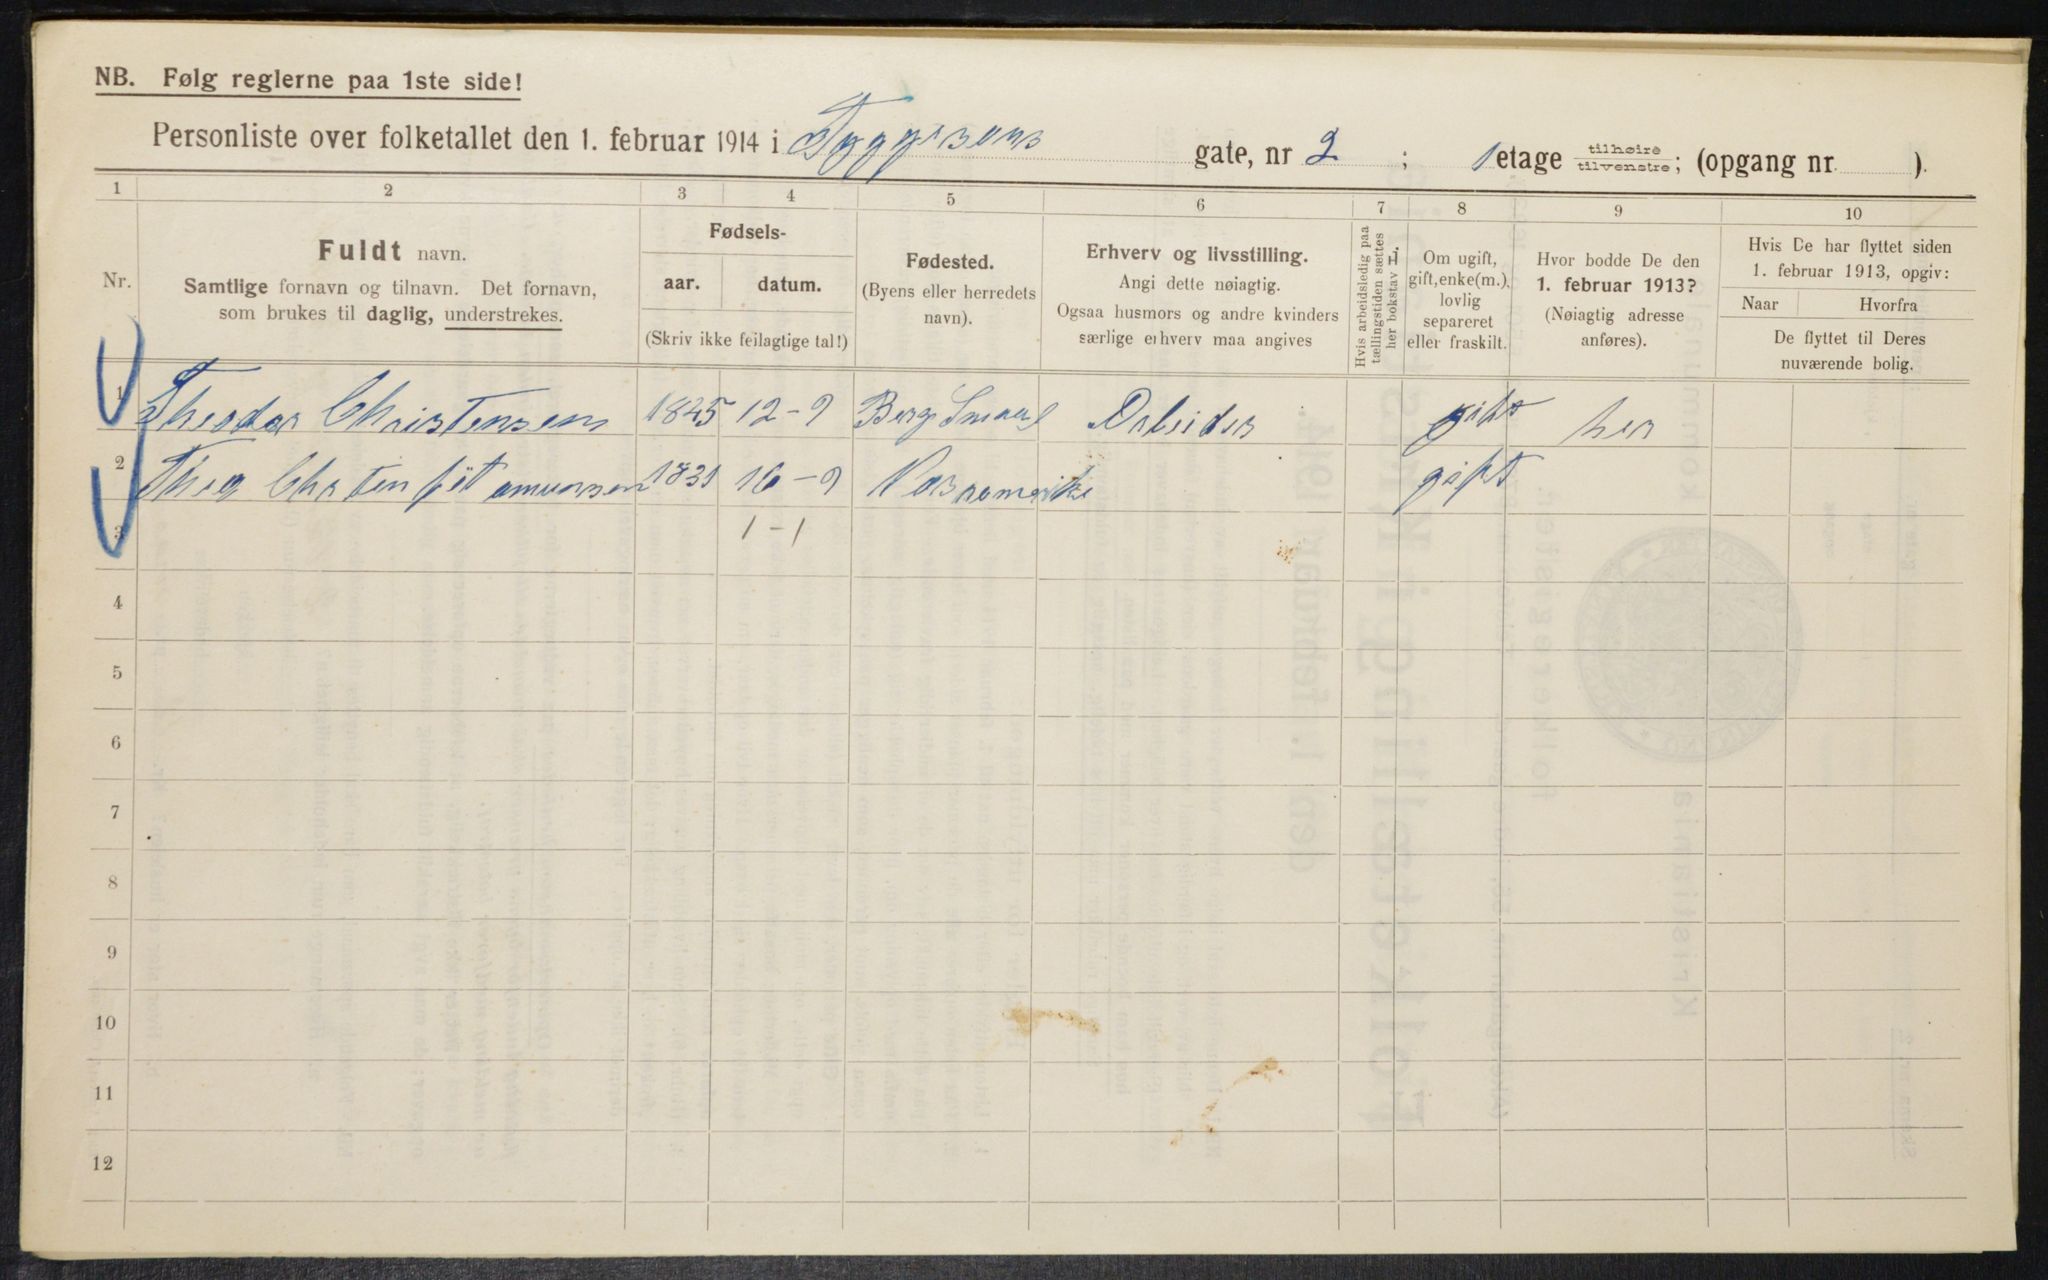 NB. Følg reglerne paa 1ste side!
Personliste over folketallet den 1. februar 1914 i Tyggesons gate, nr 2 ; 1 etage tilhøire tilvenstre; (opgang nr. ).
1 2 3 4 5 6 7 8 9 10
Nr.
Fuldt navn.
Samtlige fornavn og tilnavn. Det fornavn,
som brukes til daglig, understrekes.
Fødsels-
aar. datum.
(Skriv ikke feilagtige tal!)
Fødested.
(Byens eller herredets
navn).
Erhverv og livsstilling.
Angi dette nøiagtig.
Ogsaa husmors og andre kvinders
særlige erhverv maa angives
Hvis arbeidsledig paa
tællingstiden sættes
her bokstav L.
Om ugift,
gift, enke(m.),
lovlig
separeret
eller fraskilt.
Hvor bodde De den
1. februar 1913?
(Nøiagtig adresse
anføres).
Hvis De har flyttet siden
1. februar 1913, opgiv:
Naar Hvorfra
De flyttet til Deres
nuværende bolig.
1 Theodor Christensen 1845 12-9 Berg Smaal Arbeider gift her
2 Thea Christen föt amunsen 1831 16-9 Nas romerike gift
3 1-1
4
5
6
7
8
9
10
11
12